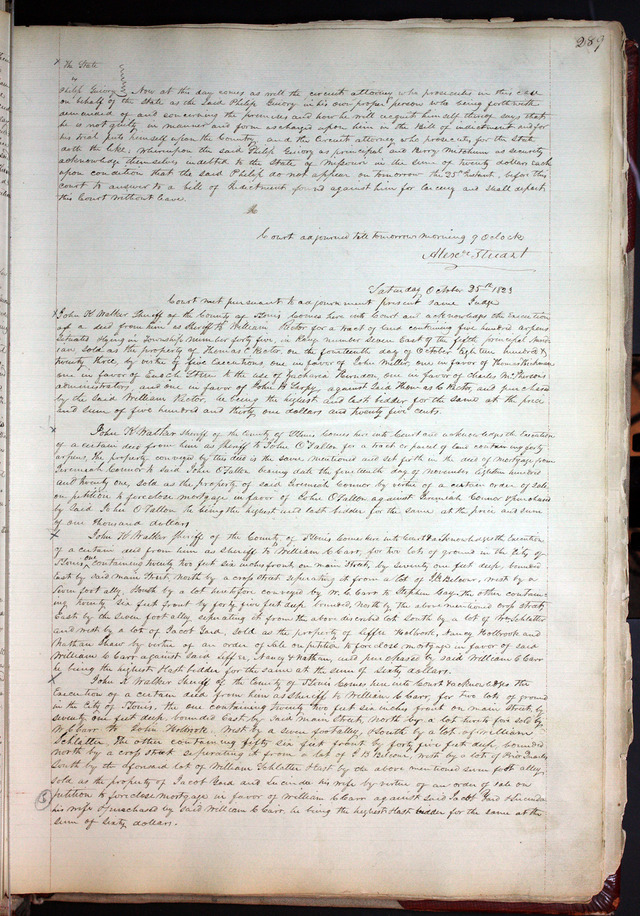 289
The State
vs
Philip Guiory Now at this day comes as well the circuit attorney who prosecutes in this case
on behalf of the State as the Said Philip Guiory in his own proper persons who being forthwith
demanded of and concerning the premises and how he will acquit himself thereof says that
he is not guilty in manner and form as charged upon him in the Bill of indictment and for
his trial puts himself upon the Country, and the Circuit attorney who prosecutes for the State
doth the like, whereupon the said Philip Guiory as principal and Perry Mitchum as security
acknowledge themselves indebted to the State of Missouri in the sum of twenty dollars each
upon condition that the said Philip do not appear on tomorrow the 25th Instant, before this
court to answer to a bill of Indictment found against him for larceny and shall depart
this Court without leave.
Court adjourned till tomorrow morning 9 Oclock
Alexr. Stuart
Saturday October 25th 1823
Court met pursuant to adjournment present same Judge
John K Walker Sheriff of the County of St Louis Comes here into Court and acknowledges the Execution
of a deed from him as sheriff to William Rector for a tract of land containing five hundred arpens
Situated & lying in Township number forty five, in Range number Seven East of the fifth principal meri
dian Sold as the property of Thomas C Rector, on the fourteenth day of October Eighteen hundred &
twenty three, by virtue of five Executions one in favor of John Miller, one in favor of Thomas
one in favor of Enoch Steen to the use of Zachariah Herndon one in favor of Charles McPhersons
administrators, and one in favor of John H Sarpy, against Said Thomas C Rector, and purchased
by the Said William Rector, he being the highest and last bidder for the same at the price
and sum of five hundred and thirty one dollars and twenty five cents.
John K Walker Sheriff of the County of St Louis Comes here into Court and acknowledges the Execution
of a certain deed from him as sheriff to John O'Fallon for a tract or parcel of land containing forty
arpens, the property conveyed by this deed is the same mentioned and set forth in the deed of mortgage from
Jeremiah Connor to said John O'Fallon bearing date the fourteenth day of november Eighteen hundred
and twenty one, sold as the property of said Jeremiah Connor by virtue of a certain order of sale,
on petition to foreclose mortgage in favor of John O'Fallon against Jeremiah Connor & purchased
by Said John O'Fallon he being the highest and last bidder for the same at the price and sum
of one thousand dollars
John K Walker Sheriff of the County of St Louis Comes here into Court & acknowledges the Execution
of a certain deed from him as Sheriff to William C Carr, for two lots of ground in the City of
St Louis, one containing twenty two feet six inches front on main Street, by seventy one feet deep, bounded
East by said main Street, North by a cross street seperating it from a lot of P Belcour, west by a
seven foot ally, South by a lot heretofore conveyed by W. C Carr to Stephen Gay. the other contain-
ing twenty six feet front by forty five feet deep bounded, North by the above mentioned cross street
East by the seven foot alley, seperating it from the above described lot South by a lot of Wm Schlatter
and west by a lot of Jacob Yard, sold as the property of Liffee Holbrook, Nancy Holbrook and
Nathan Shaw by virtue of an order of Sale on petition to foreclose mortgage in favor of said
William C Carr against said Liffee, Nancy & Nathan, and purchased by said William C Carr
he being the highest & last bidder for the same at the sum of sixty dollars.
John K Walker Sheriff of the County of St Louis Comes here into Court & acknowledges the
Execution of a certain deed from him as sheriff to William C Carr, for two lots of ground
in the City of St Louis, the one containing twenty two feet six inches front on main street, by
seventy one feet deep, bounded East by Said main Street, North by a lot heretofore sold by
W C Carr to John Holbrook, West by a seven foot alley, & South by a lot of William
Schlatter, The other containing fifty six feet front by forty five feet deep, bounded
North by a cross street seperating it from a lot of P Belcour, west by a lot of
South by the aforesaid lot of William Schlatter & East by the above mentioned seven foot alley
sold as the property of Jacob Yard and Lucinda his wife by virtue of an order of sale on
petition to foreclose mortgage in favor of William C Carr against said Jacob Yard & Lucinda
his wife & purchased by said William C Carr, he being the highest & last bidder for the same at the
sum of Sixty dollars.